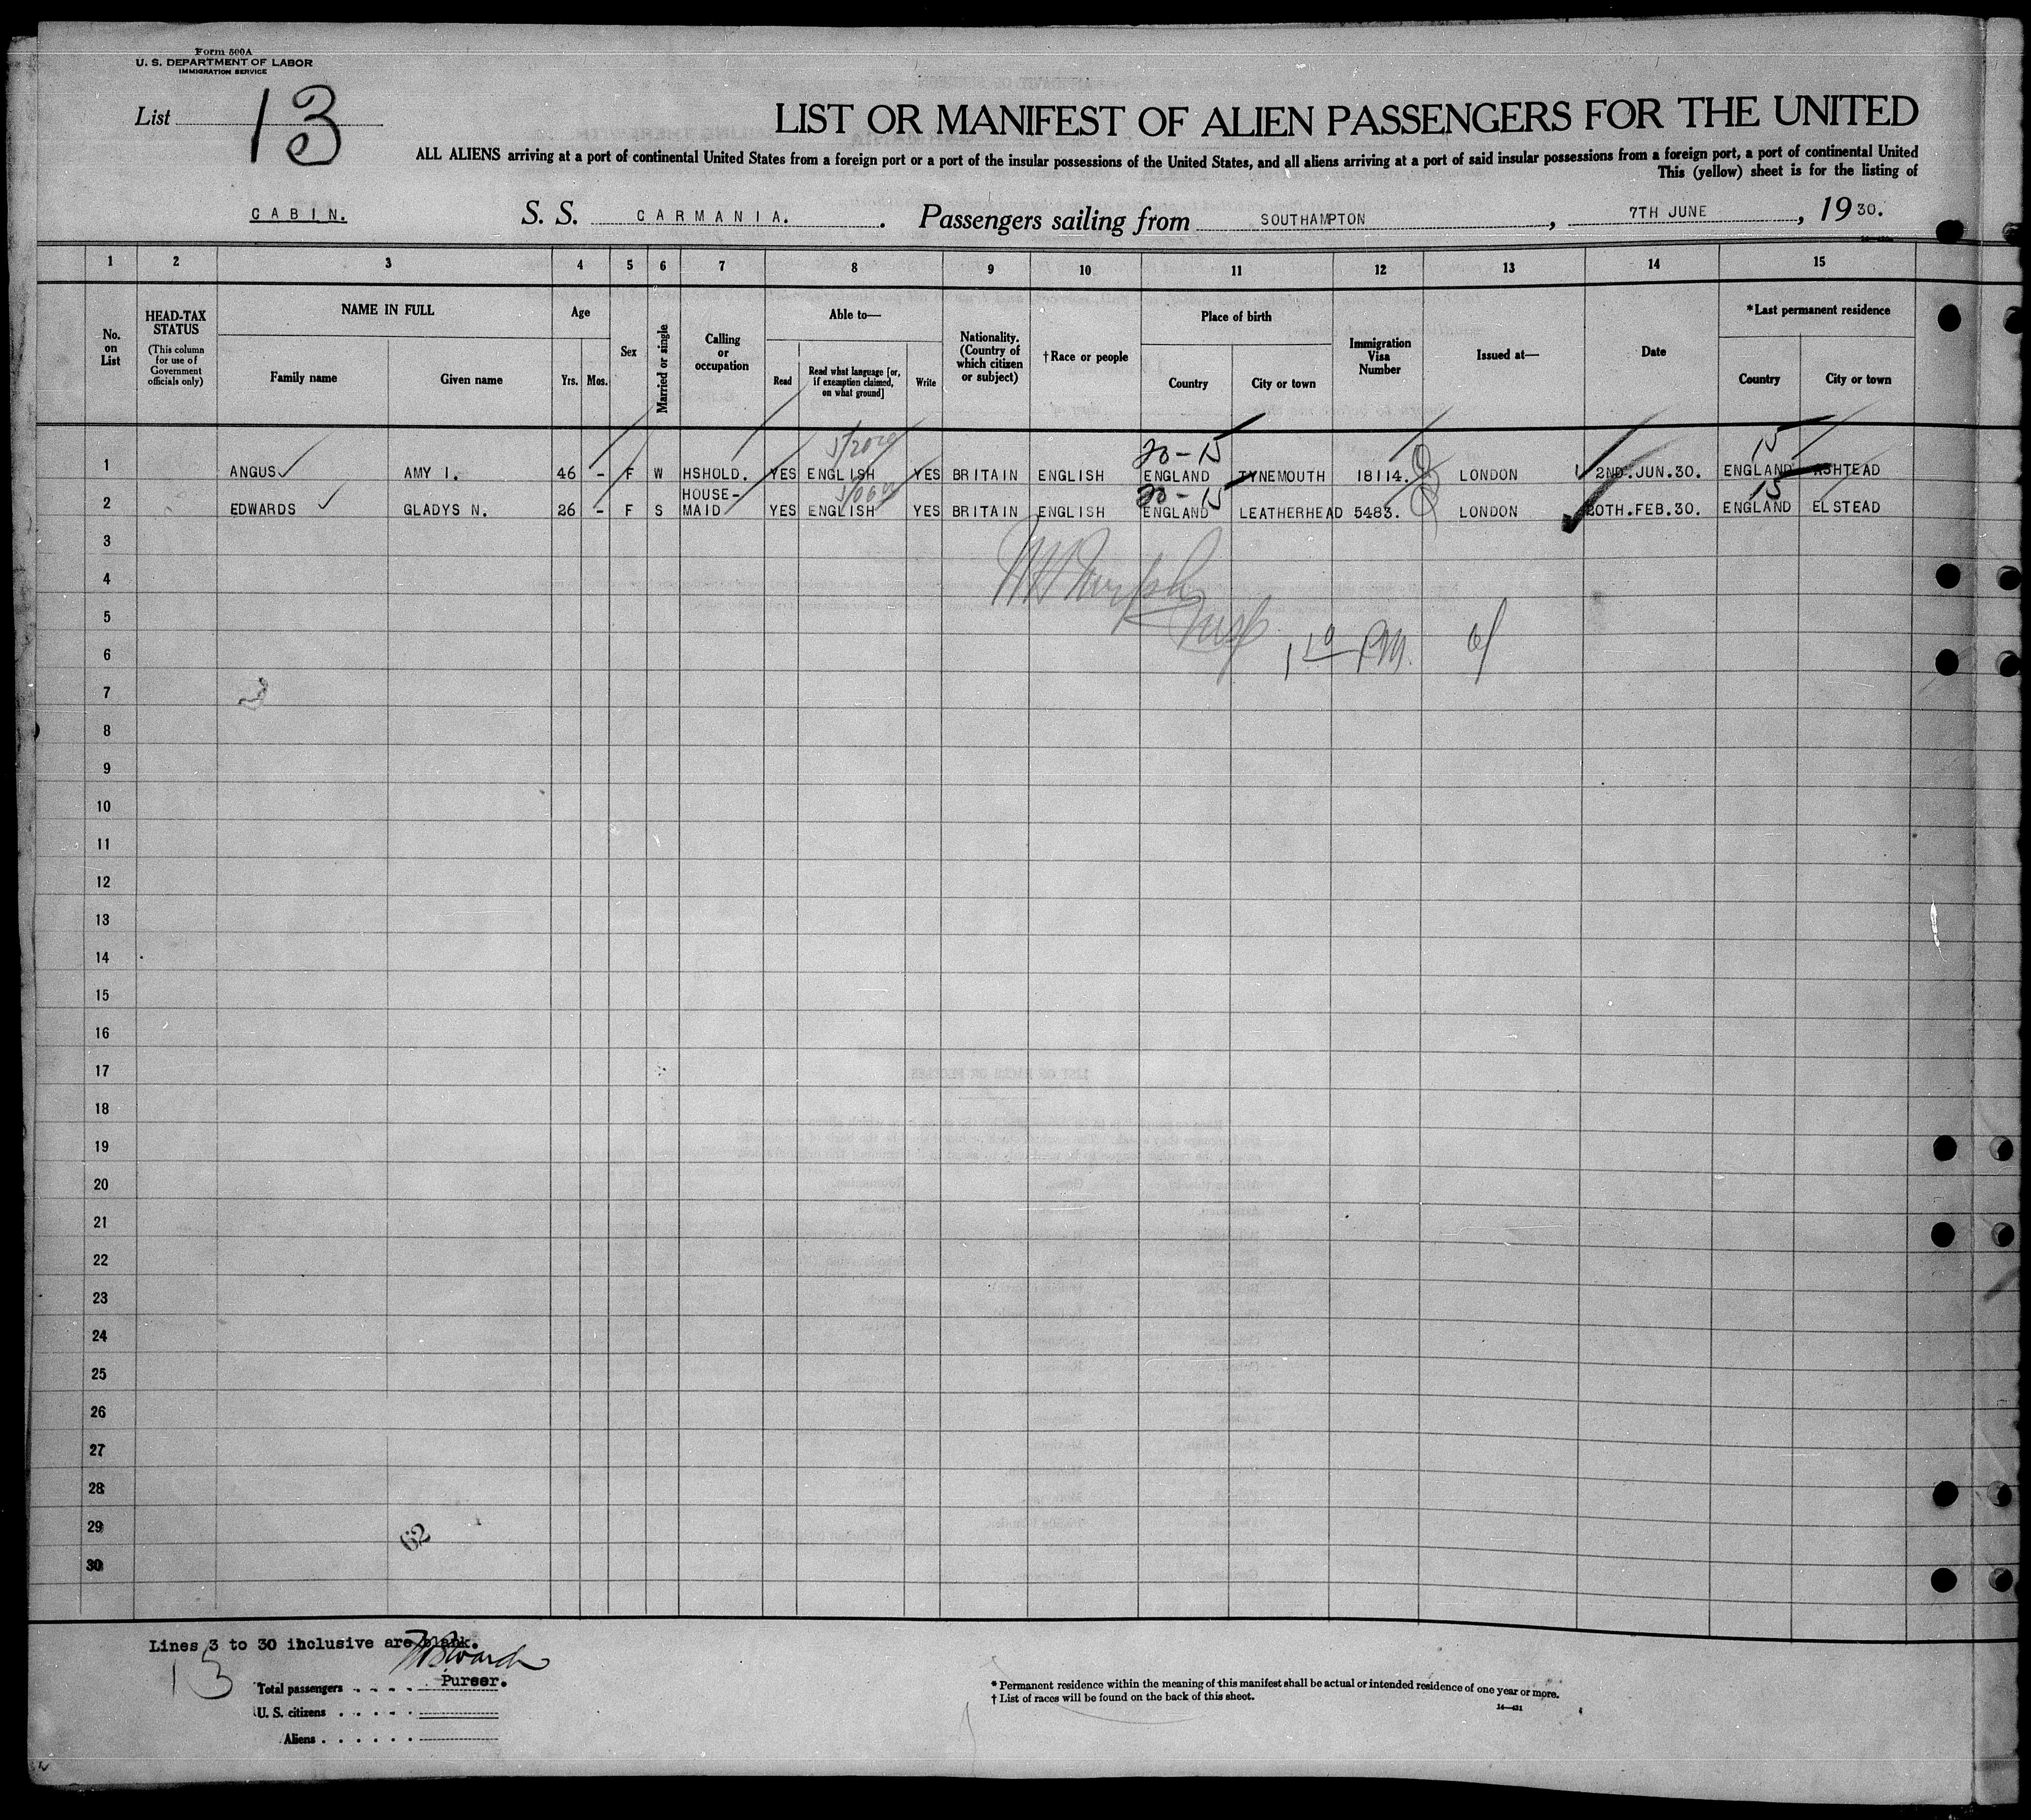 Form 500A
U. S. DEPARTMENT OF LABOR
IMMIGRATION SERVICE
List 13
LIST OR MANIFEST OF ALIEN PASSENGERS FOR THE UNITED
ALL ALIENS arriving at a port of continental United States from a foreign port or a port of the insular possessions of the United States, and all aliens arriving at a port of said insular possessions from a foreign port, a port of continental United
This (yellow) sheet is for the listing of
CABIN. S. S. CARMANIA. Passengers sailing from SOUTHAMPTON, 7TH JUNE, 1930.
1 2 3 4 5 6 7 8 9 10 11 12 13 14 15
No. on List
HEAD-TAX STATUS
(This column for use of Government officials only)
NAME IN FULL
Family name
Given name
Age
Yrs. Mos.
Sex
Married or single
Calling or occupation
Able to—
Read
Read what language [or, if exemption claimed, on what ground]
Write
Nationality. (Country of which citizen or subject)
† Race or people
Place of birth
Country
City or town
Immigration Visa Number
Issued at—
Date
*Last permanent residence
Country
City or town
20-15 15
1 ANGUS AMY I. 46 - F W HSHOLD. YES ENGLISH YES BRITAIN ENGLISH ENGLAND TYNEMOUTH 18114. LONDON 2ND.JUN.30. ENGLAND ASHTEAD
20-15 15
2 EDWARDS GLADYS N. 26 - F S HOUSE-MAID YES ENGLISH YES BRITAIN ENGLISH ENGLAND LEATHERHEAD 5483. LONDON 20TH.FEB.30. ENGLAND ELSTEAD
3
4
5
6
7
8
9
10
11
12
13
14
15
16
17
18
19
20
21
22
23
24
25
26
27
28
29
30
62
Lines 3 to 30 inclusive are blank.
13
Purser.
Total passengers
U. S. citizens
Aliens
* Permanent residence within the meaning of this manifest shall be actual or intended residence of one year or more.
† List of races will be found on the back of this sheet.